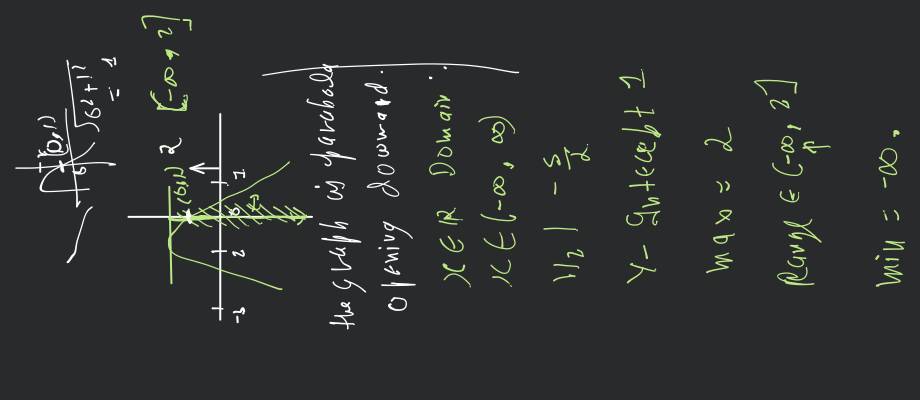 (0,1)
6²+1²
= 1
(0,1) 2 [-∞, 2]
-3 2 0 1
the graph is parabola
opening downward.
x ∈ R Domain
x ∈ (-∞, ∞)
- 5/2
y- Intecept 1
max = 2
Range ∈ (-∞, 2]
min = -∞.